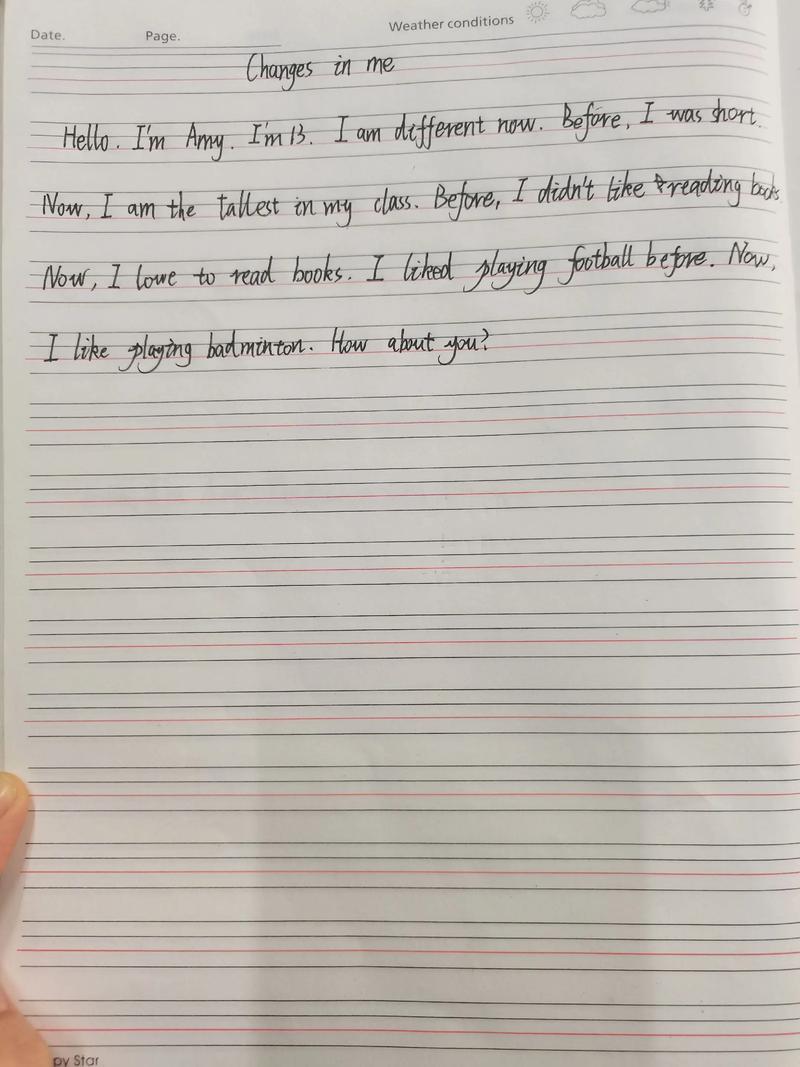 Date. Page. Weather conditions
Changes in me
Hello. I'm Amy. I'm 13. I am different now. Before, I was short.
Now, I am the tallest in my class. Before, I didn't like reading books.
Now, I love to read books. I liked playing football before. Now,
I like playing badminton. How about you?
py Star